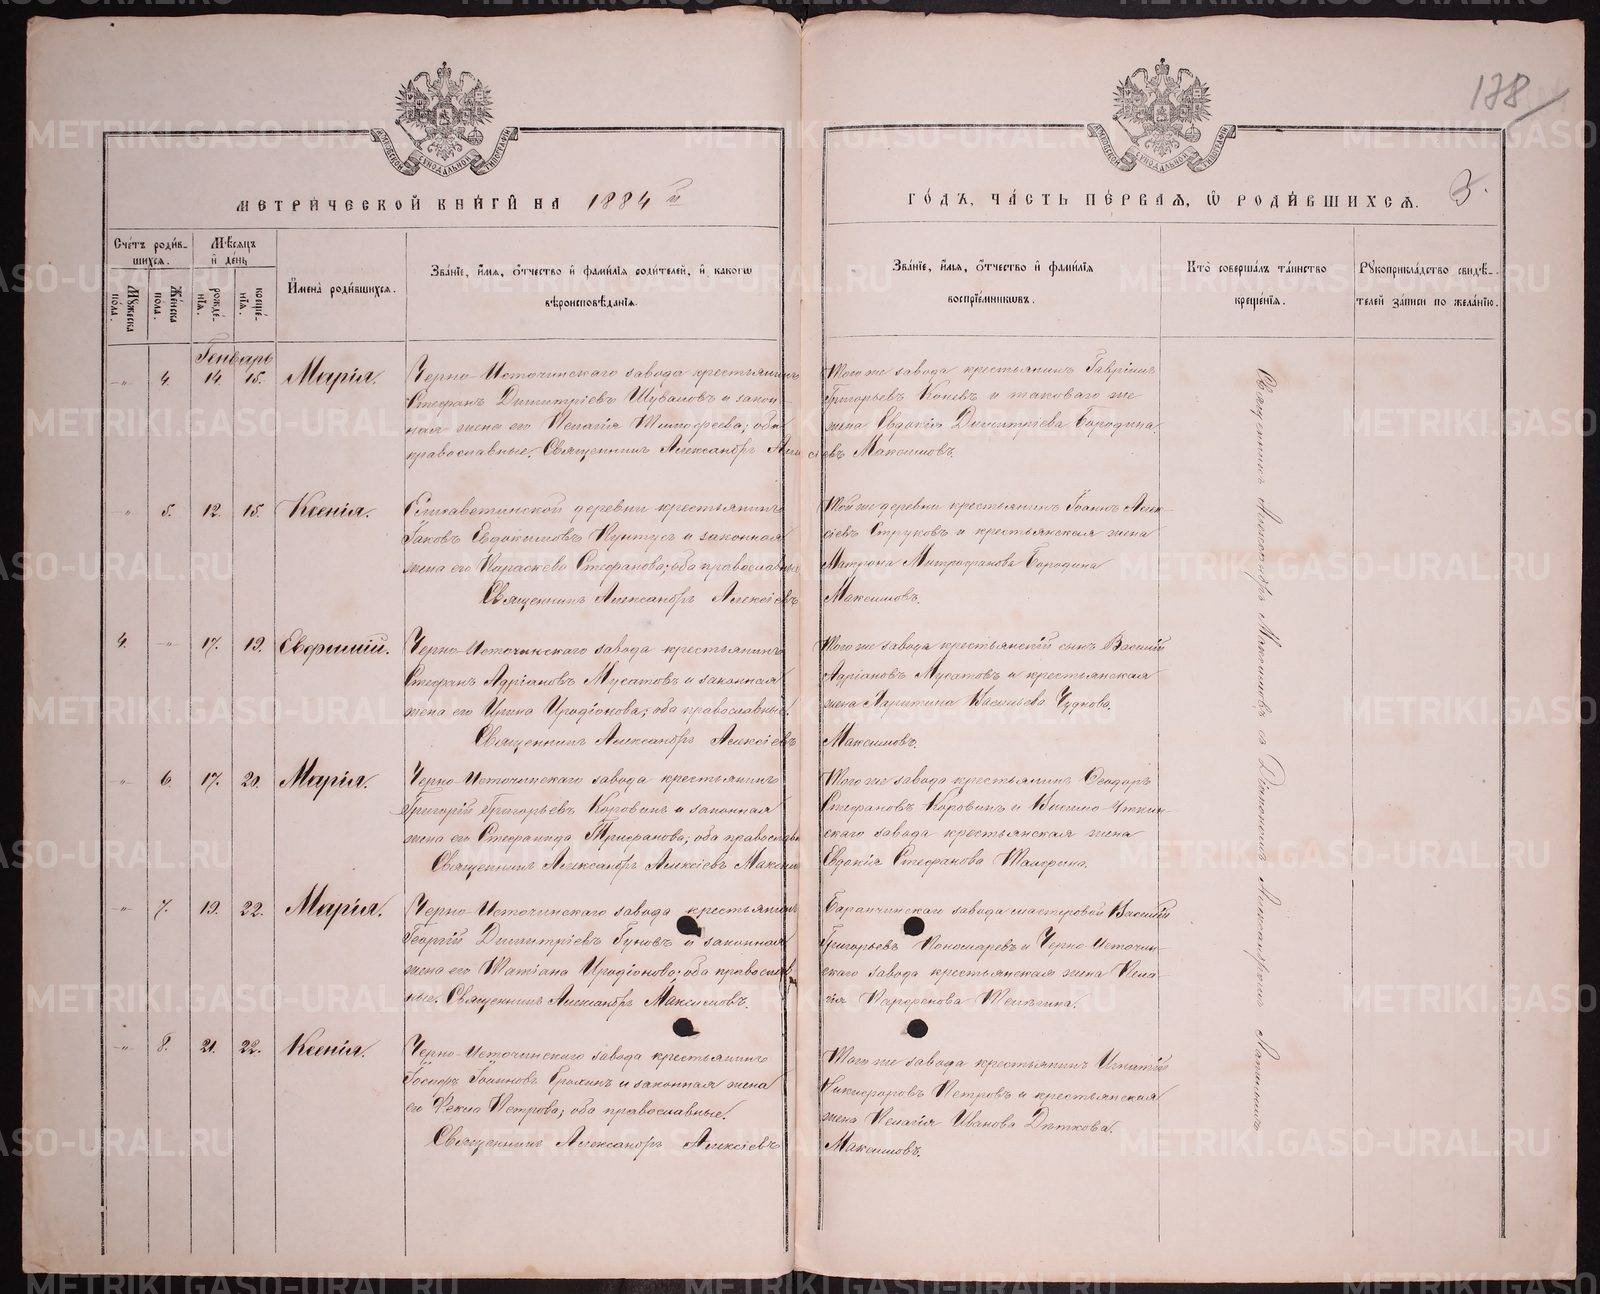 178
3.
МЕТРИ́ЧЕСКОЙ КНИ́ГИ НА 1884 й
ГО́ДЪ, ЧА́СТЬ ПЕ́РВАЯ, Ѡ РОДИ́ВШИХСЯ.
Сче́тъ роди́вшихся.
Мꙋжеска пола.
Же́нска пола.
Мѣсяцъ и день
рожде́нїя.
креще́нїя.
Имена̀ роди́вшихся.
Зва́нїе, и́мя, о́тчество и фами́лїя роди́телей, и како́гѡ
вѣроисповѣ́данїя.
Зва́нїе, и́мя, о́тчество и фами́лїя
воспрїе́мникѡвъ.
Кто̀ соверша́лъ та́инство
креще́нїя.
Рꙋкоприкла́дство свидѣ́-
телей за́писи по жела́нїю.
Генварь
-„- 4. 14. 15. Марія.
Черно-Источинскаго завода крестьянинъ
Стефанъ Димитріевъ Шуваловъ и закон-
ная жена его Пелагія Тимофеева; оба
православные. Священникъ Александръ Алек
Того же завода крестьянинъ Гавріилъ
Григорьевъ Коневъ и таковаго же
жена Евдокія Димитріева Бородина.
сіевъ Максимовъ.
„ 5. 12. 15. Ксенія.
Елизаветинской деревни крестьянинъ
Іаковъ Евдокимовъ Пунтусъ и законная
жена его Параскева Стефанова; оба православные
Священникъ Александръ Алексіевъ
Той же деревни крестьянинъ Іоаннъ Алек-
сіевъ Струковъ и крестьянская жена
Матрона Митрофанова Бородина
Максимовъ.
4. -„- 17. 19. Евфимій.
Черно-Источинскаго завода крестьянинъ
Стефанъ Адріановъ Мусатовъ и законная
жена его Ирина Иродіонова; оба православные.
Священникъ Александръ Алексіевъ
Того же завода крестьянскій сынъ Василій
Адріановъ Мусатовъ и крестьянская
жена Харитина Васильева Чуднова.
Максимовъ.
„ 6. 17. 20. Марія.
Черно-Источинскаго завода крестьянинъ
Григорій Григорьевъ Коровинъ и законная
жена его Стефанида Трифанова; оба православн
Священникъ Александръ Алексіевъ Максим
Того же завода крестьянинъ Ѳеодоръ
Стефановъ Коровинъ и Висимо-Уткин-
скаго завода крестьянская жена
Евдокія Стефанова
-„- 7. 19. 22. Марія.
Черно-Источинскаго завода крестьянинъ
Георгій Димитріевъ Гуновъ и законная
жена его Татіана Иродіонова; оба православ
ные. Священникъ Александръ Максимовъ.
Баранчинскаго завода мастеровой Василій
Григорьевъ Пономаревъ и Черно-Источин-
скаго завода крестьянская жена Пела-
гія Парфенова Телегина.
-„- 8. 21. 22. Ксенія.
Черно-Источинскаго завода крестьянинъ
Іосифъ Іоанновъ Ерохинъ и законная жена
его Ѳекла Петрова; оба православные.
Священникъ Александръ Алексіевъ
Того же завода крестьянинъ Игнатій
Никифоровъ Петровъ и крестьянская
жена Пелагія Иванова Дѣткова.
Максимовъ.
Священникъ Александръ Максимовъ съ Діакономъ Александромъ
METRIKI.GASO-URAL.RU